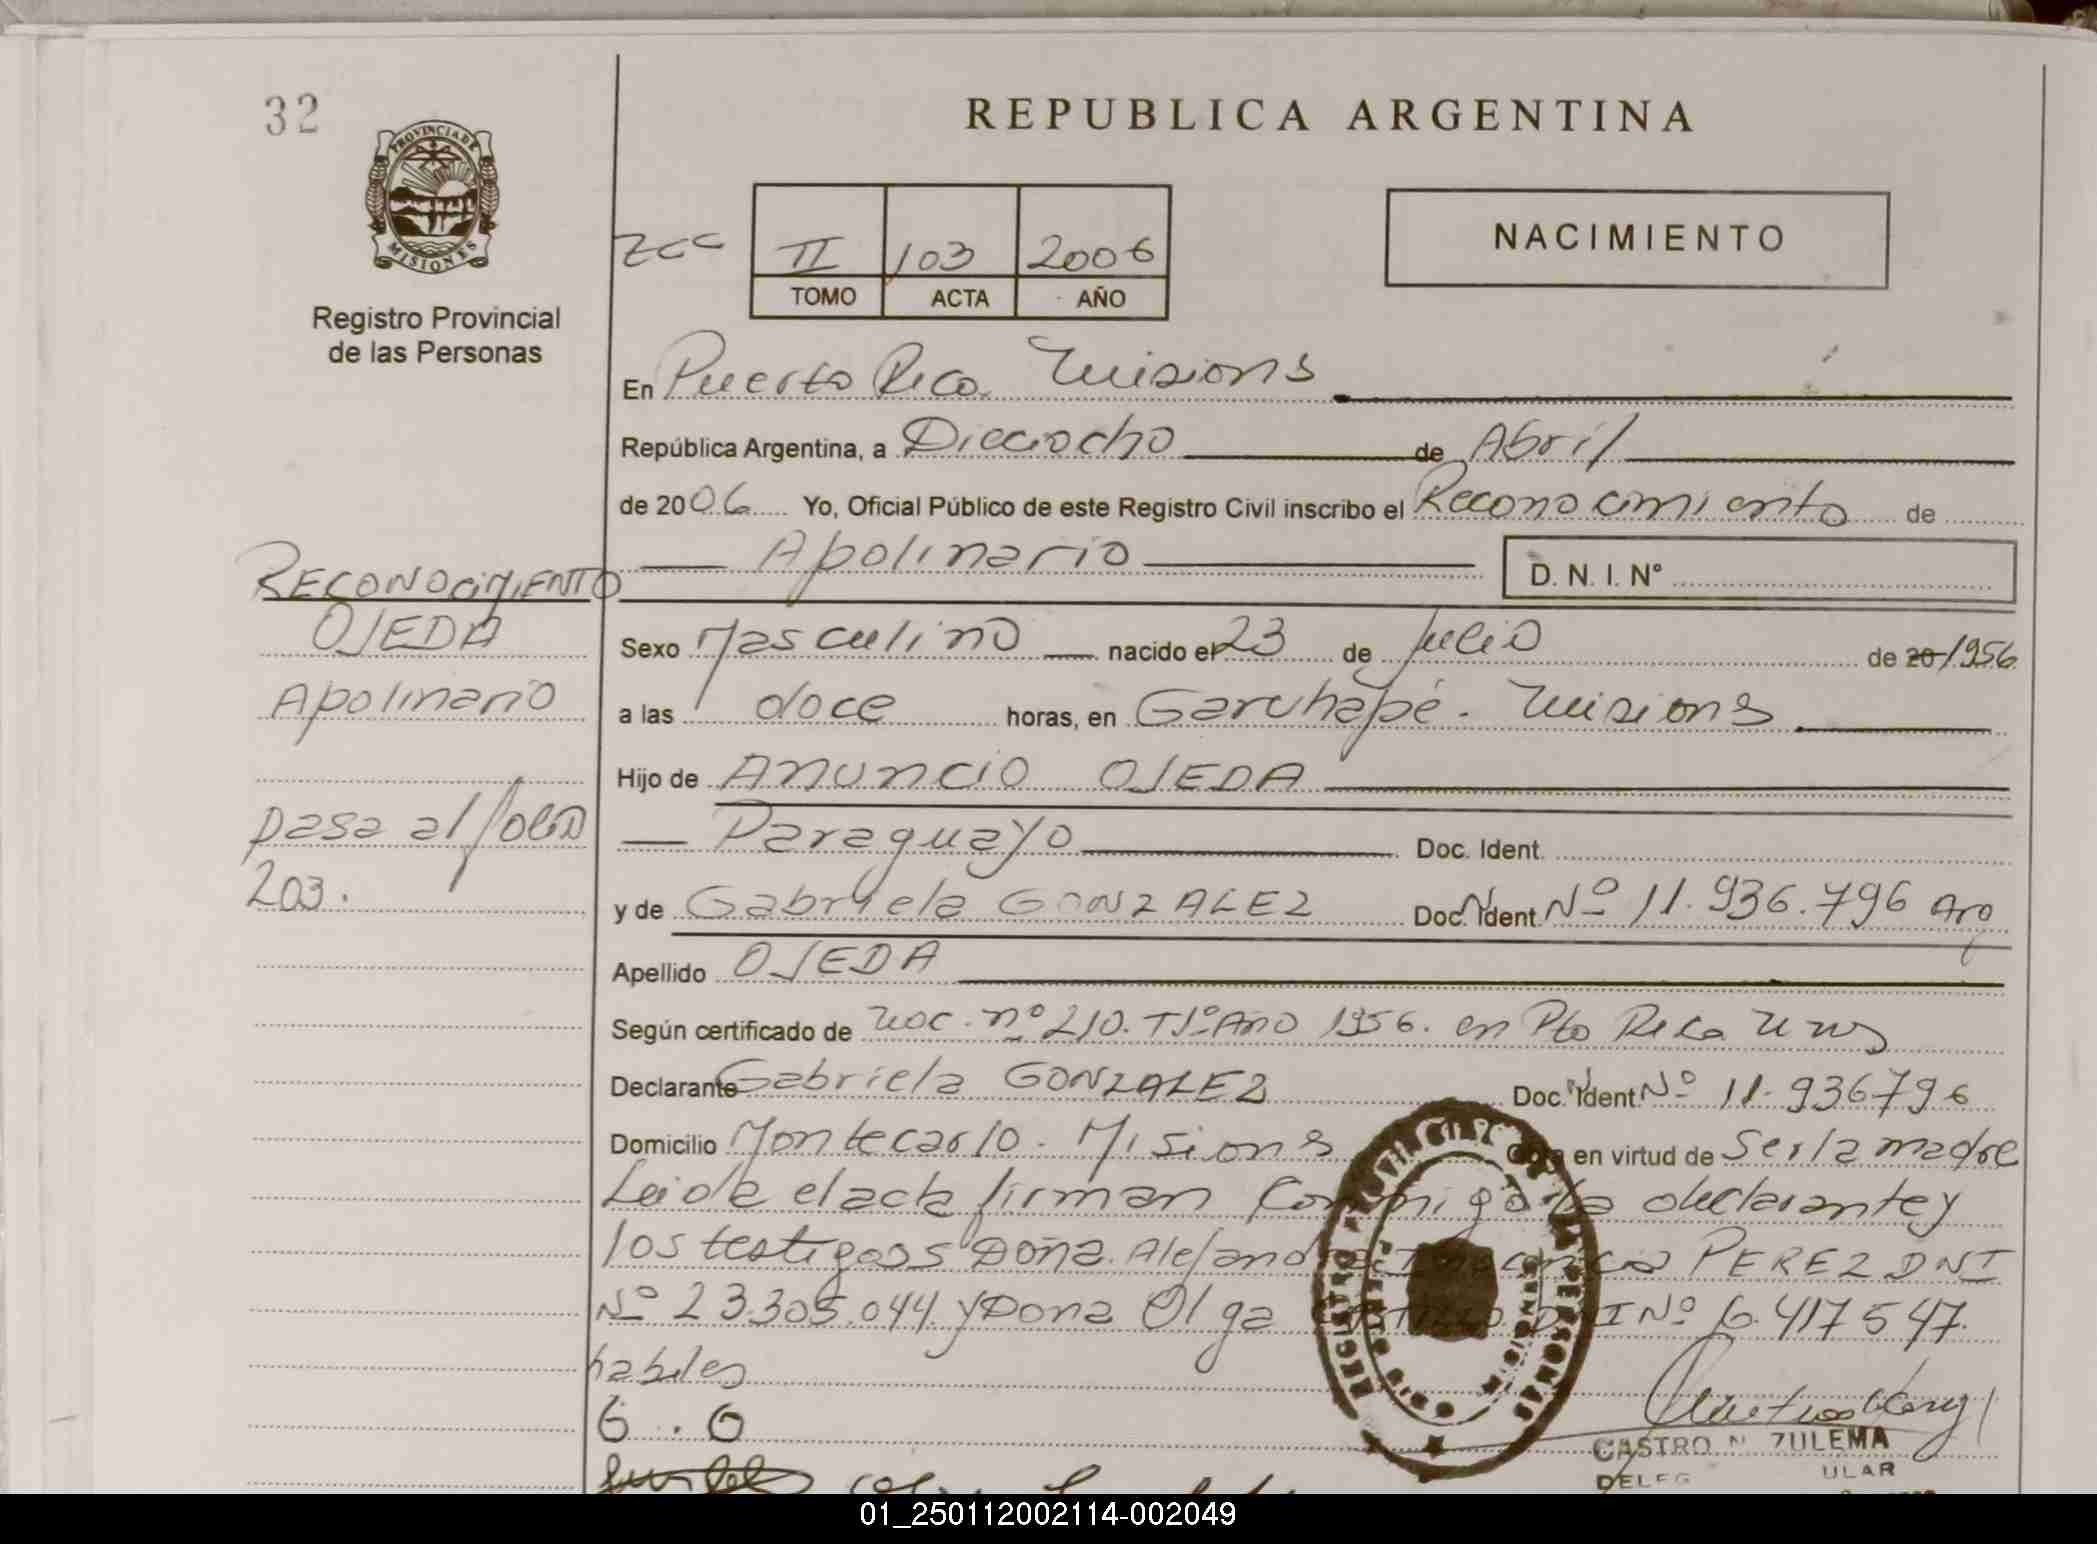 32
PROVINCIA DE
MISIONES
Registro Provincial
de las Personas
REPUBLICA ARGENTINA
II 103 2006
TOMO ACTA AÑO
NACIMIENTO
En Puerto Rico. Misiones
República Argentina, a Dieciocho de Abril
de 2006 Yo, Oficial Público de este Registro Civil inscribo el Reconocimiento de
Apolinario D. N. I. Nº
RECONOCIMIENTO
OJEDA
Apolinario
Pasa al folio
203.
Sexo Masculino nacido el 23 de Julio de 20 1956
a las doce horas, en Garuhapé - Misiones
Hijo de Anuncio OJEDA
Paraguayo Doc. Ident.
y de Gabriela GONZALEZ Doc. Ident. Nº 11.936.796 Arg
Apellido OJEDA
Según certificado de nac. nº 210. Tº Iº Año 1956. en Pto Rico Mns
Declarante Gabriela GONZALEZ Doc. Ident. Nº 11.936796
Domicilio Montecarlo - Misiones en virtud de Ser la madre
Leida el acta firman Conmigo la declarante y
los testigos Doña Alejandra PEREZ DNI
Nº 23.305.044 y Dona Olga DNI Nº 6.417547.
habiles
G. G
REGISTRO PROVINCIAL DE LAS PERSONAS
PUERTO RICO
MISIONES
CASTRO N. ZULEMA
DELEG ULAR
01_250112002114-002049